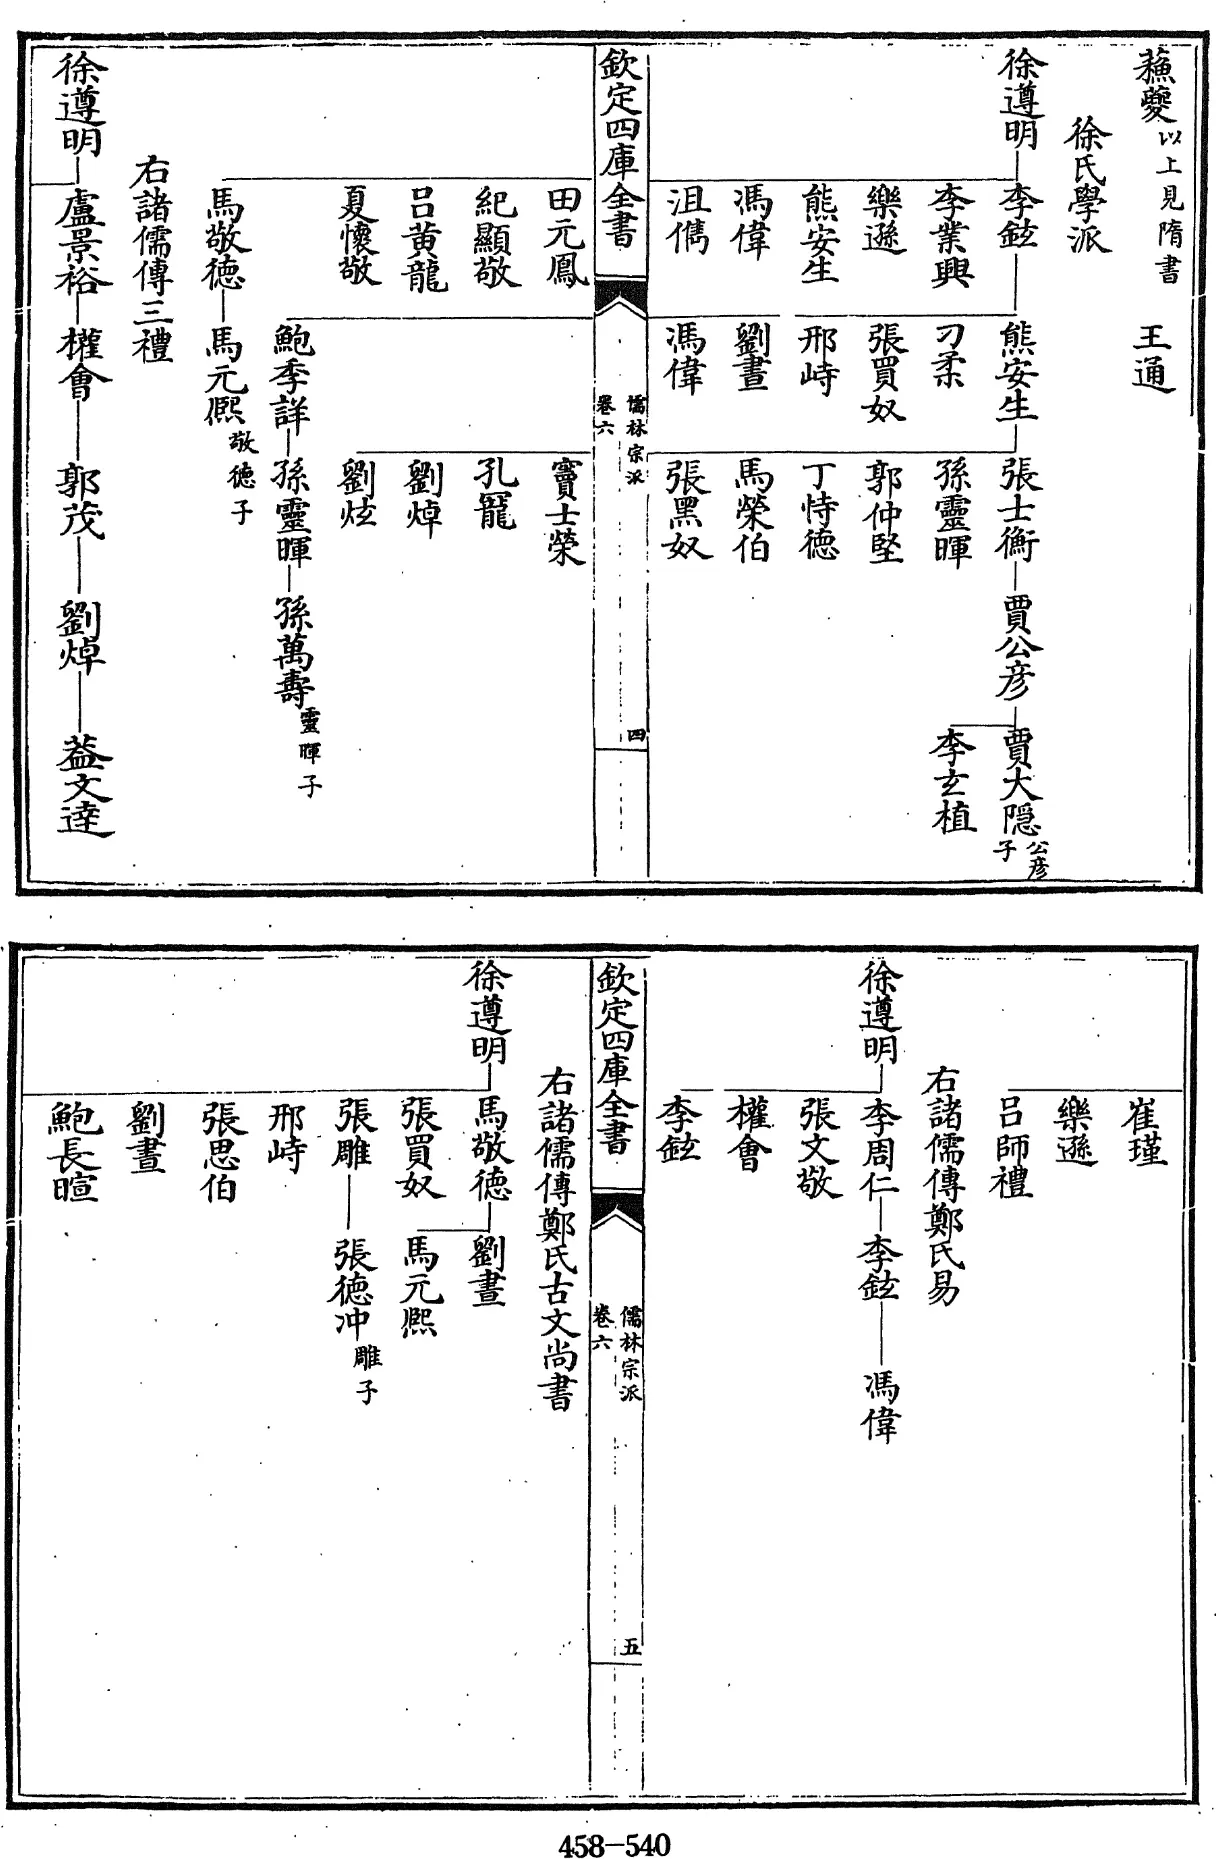 蘓夔以上見隋書 王通
徐氏學派
徐遵明 李鉉 熊安生 張士衡 賈公彦 賈大隠公彦子
李業興 刁柔 孫靈暉 李玄植
樂遜 張買奴 郭仲堅
熊安生 邢峙 丁恃德
馮偉 劉晝 馬榮伯
沮儁 馮偉 張黑奴
欽定四庫全書 儒林宗派 卷六 四
田元鳳 竇士榮
紀顯敬 孔籠
呂黄龍 劉焯
夏懷敬 劉炫
鮑季詳 孫靈暉 孫萬壽靈暉子
馬敬德 馬元熈敬德子
右諸儒傳三禮
徐遵明 盧景裕 權會 郭茂 劉焯 葢文達
崔瑾
樂遜
呂師禮
右諸儒傳鄭氏易
徐遵明 李周仁 李鉉 馮偉
張文敬
權會
李鉉
欽定四庫全書 儒林宗派 卷六 五
右諸儒傳鄭氏古文尚書
徐遵明 馬敬德 劉晝
張買奴 馬元熈
張雕 張德冲雕子
邢峙
張思伯
劉晝
鮑長暄
458-540